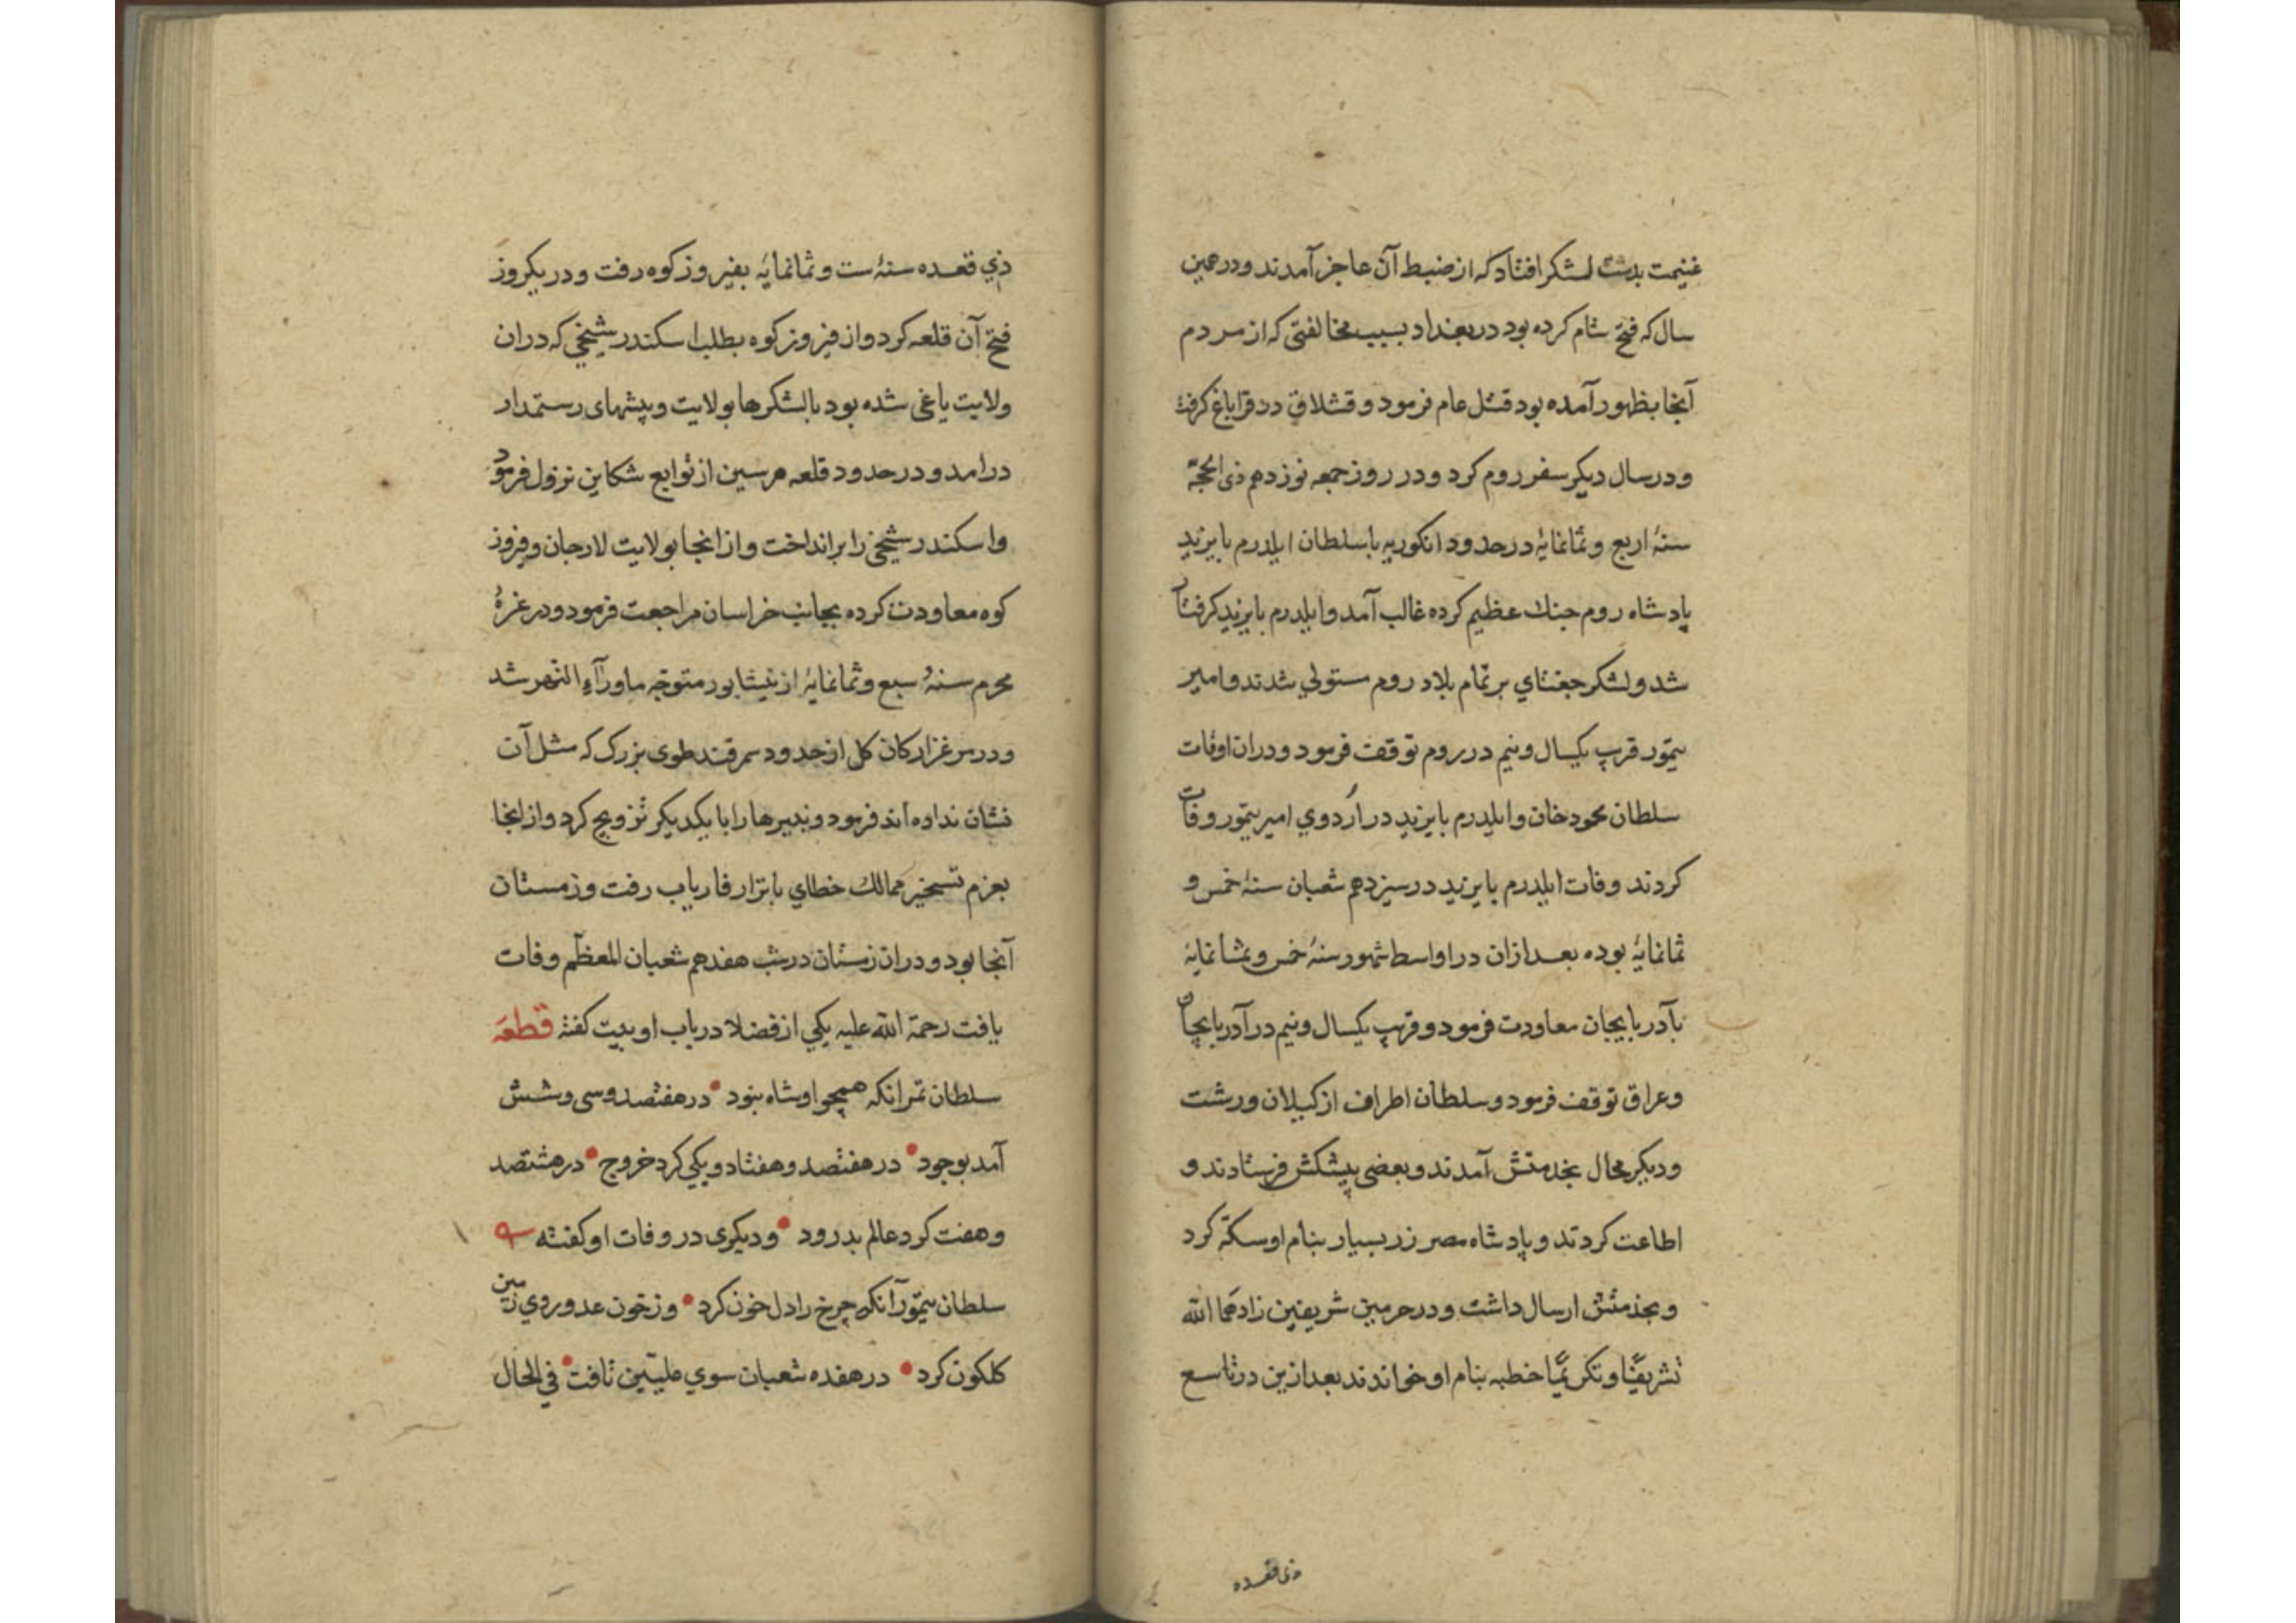 غنیمت بدست لشکر افتاد که از ضبط آن عاجز آمدند و در همین
سال که فتح شام کرده بود در بغداد بسبب مخالفتی که از مردم
آنجا بظهور آمده بود قتل عام فرمود و قشلاق در قراباغ کرفت
و در سال دیکر سفر روم کرد و در روز جمعه نوزدهم ذی الحجّة
سنهٔ اربع و ثمانمایهٔ در حدود انکوریه با سلطان ایلدرم بایزید
پادشاه روم جنك عظیم کرده غالب آمد و ایلدرم بایزید کرفتار
شد و لشکر جغتاي بر تمام بلاد روم مستولي شدند و امیر
تیمّور قرب یکسال و نیم در روم توقف فرمود و دران اوقات
سلطان محمود خان و ایلدرم بایزید در اردوي امیر تیمّور وفات
کردند وفات ایلدرم بایزید در سیزدهم شعبان سنهٔ خمس و
ثمانمایهٔ بوده بعد ازان در اواسط شهور سنهٔ خمس و ثمانمایهٔ
بآدربایجان معاودت فرمود و قرب یکسال و نیم در آدربایجان
و عراق توقف فرمود و سلطان اطراف از کیلان و رشت
و دیکر محال بخدمتش آمدند و بعضی پیشکش فرستادند و
اطاعت کردند و پادشاه مصر زر بسیار بنام او سکّه کرد
و بخدمتش ارسال داشت و در حرمین شریفین زادهما الله
تشریفًا و تکریمًا خطبه بنام او خواندند بعد ازین در تاسع
ذی قعده
ذي قعده سنهٔ ست و ثمانمایهٔ بفیروز کوه رفت و در یکروز
فتح آن قلعه کرد و از فیروز کوه بطلب اسکندر شیخي که دران
ولایت یاغی شده بود با لشکرها بولایت و پیشهای رستمدار
درامد و در حدود قلعه هرسین از توابع شکاین نزول فرمود
و اسکندر شیخي را برانداخت و از انجا بولایت لارجان و فیروز
کوه معاودت کرده بجانب خراسان مراجعت فرمود و در غرهٔ
محرم سنهٔ سبع و ثمانمایهٔ از نیشابور متوجّه ماورآء النّهر شد
و در مرغزار کان کل از حدود سمرقند طوی بزرك که مثل آن
نشان نداده اند فرمود و نبیرها را با یکدیکر تزویج کرد و از انجا
بعزم تسخیر ممالك خطاي باترار فاریاب رفت و زمستان
آنجا بود و دران زمستان در شب هفدهم شعبان المعظّم وفات
یافت رحمة الله علیه یکي از فضلا در باب او بیت کفته قطعه
سلطان تمر انکه همچو او شاه نبود • در هفتصد و سی و شش
آمد بوجود • در هفتصد و هفتاد و یکي کرد خروج • در هشتصد
و هفت کرد عالم بدرود • و دیکری در وفات او کفته
سلطان تیمّور آنکه چرخ را دل خون کرد • وز خون عدو روي زمین
کلکون کرد • در هفده شعبان سوي علیّین تافت • في الحال